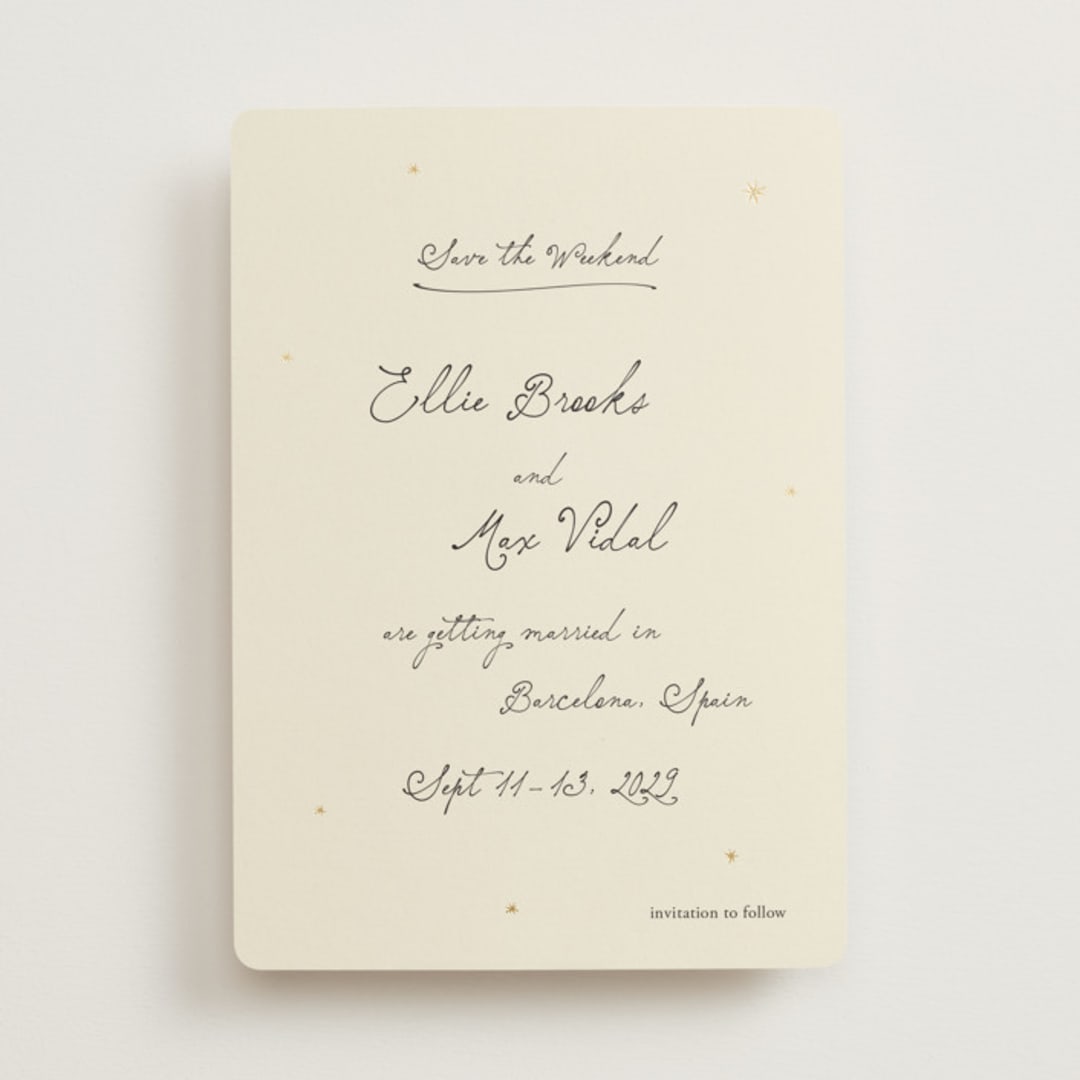 Save the Weekend
Ellie Brooks
and
Max Vidal
are getting married in
Barcelona, Spain
Sept 11-13, 2029
invitation to follow